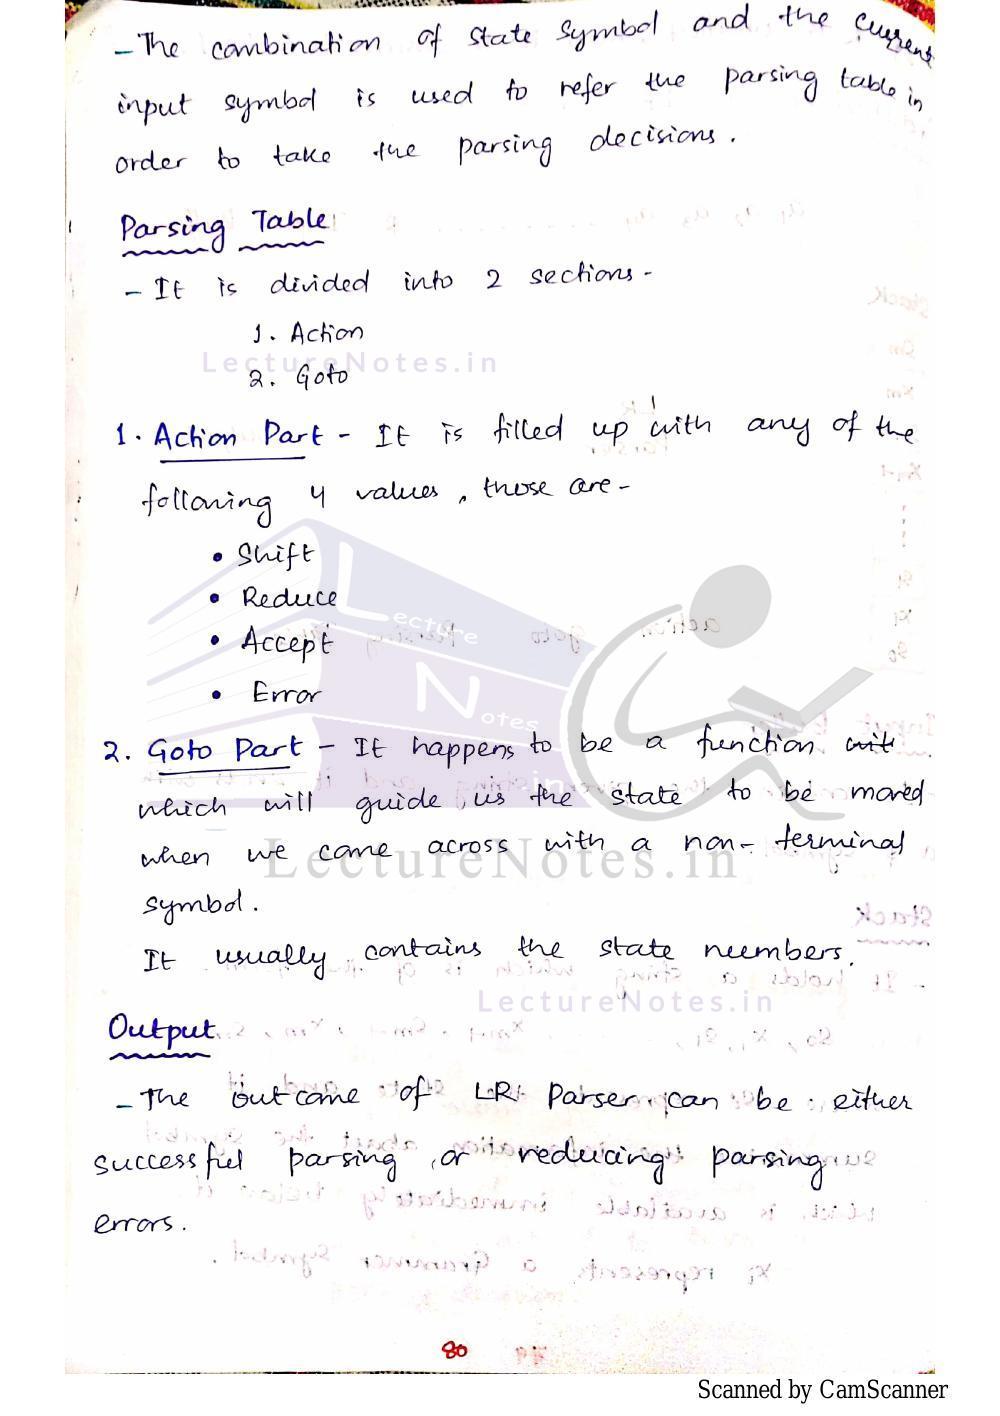 - The combination of state symbol and the current
input symbol is used to refer the parsing table in
order to take the parsing decisions.
Parsing Table
- It is divided into 2 sections -
1. Action
LectureNotes.in
2. Goto
1. Action Part - It is filled up with any of the
following 4 values, those are -
• Shift
• Reduce
Lecture
• Accept
Notes
• Error
2. Goto Part - It happens to be a function
.in
which will guide us the state to be moved
when we come across with a non-terminal
LectureNotes.in
symbol.
It usually contains the state numbers.
LectureNotes.in
Output
- The outcome of LR Parser can be either
successful parsing or reducing parsing
errors.
80
Scanned by CamScanner